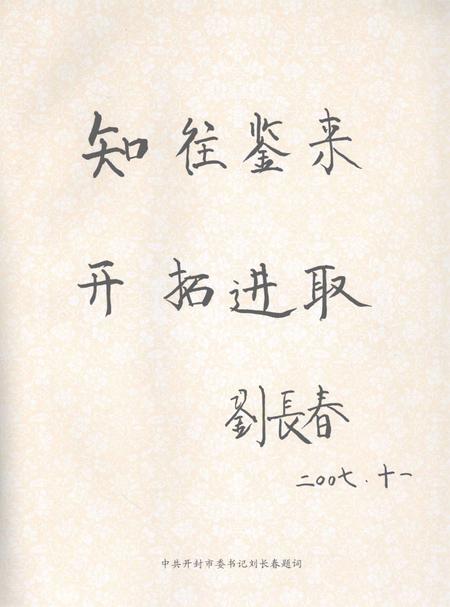 知往鉴来
开拓进取
劉長春
二〇〇七.十一
中共开封市委书记刘长春题词